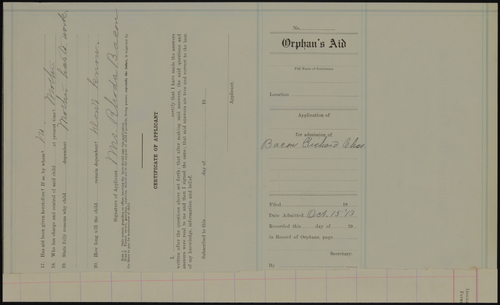 17. Has aid been given heretofore? If so, by whom? no
18. Who has charge and control of said child at present time? Mother
19. State fully reasons why child dependent Mother has to work
20. How long will the child remain dependent? not known
Signature of Applicant Mrs. Rhoda Bacon
CERTIFICATE OF APPLICANT
I, certify that I have made the answers
written after the questions above set forth; that after making said answers, the said questions and
answers were read to me and then I signed the same; that said answers are true and correct to the best
of my knowledge, information and belief.
Applicant.
Subscribed to this day of 19
No.
Orphan's Aid
Location
Application of
for admission of
Bacon, Richard Chas.
Filed 19
Date Admitted, Oct. 15 19
Recorded this day of 19
in Record of Orphans, page
Secretary.
By